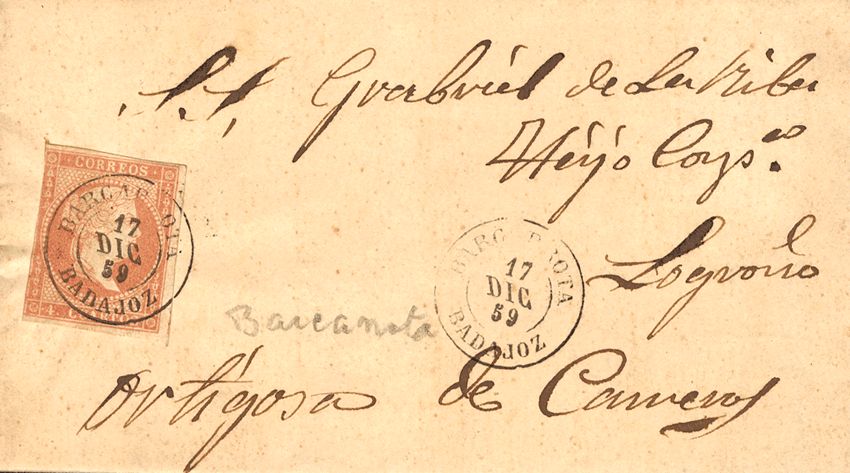 S.S. Grabriel de La Riba
Hiyjo Coyp.ª
CORREOS
BARCARROTA
17
DIC
59
BADAJOZ
4.
BARCARROTA
17
DIC
59
BADAJOZ
Logroño
Barcarrota
Ortigosa de Cameros